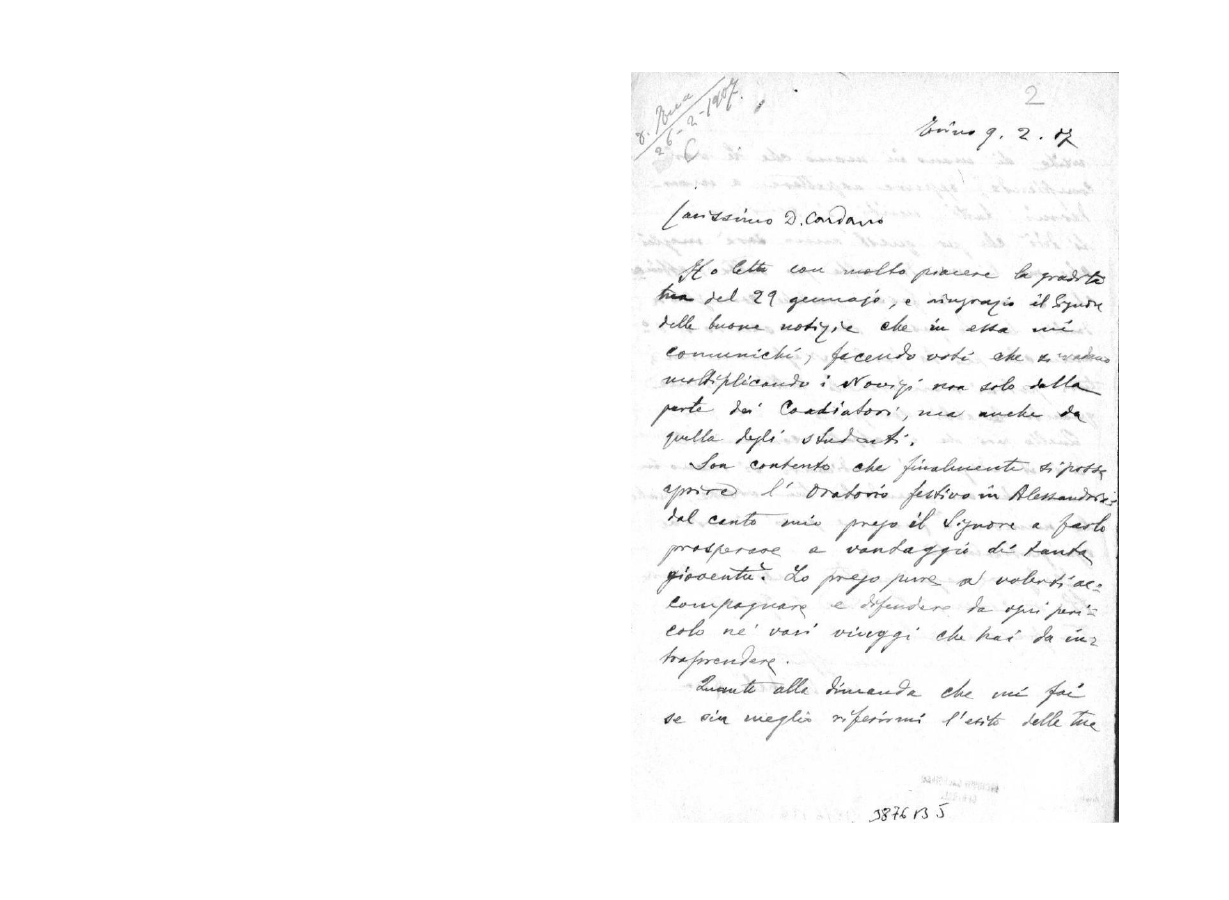 26-2-1907.
2
Torino 9. 2. 07
Carissimo D. Cardano
Ho letto con molto piacere la gradita
tua del 29 gennajo, e ringrazio il Signore
delle buone notizie che in essa mi
comunichi, facendo voti che si vadano
moltiplicando i Novizi non solo dalla
parte dei Coadiutori, ma anche da
quella degli studenti.
Son contento che finalmente si possa
aprire l'Oratorio festivo in Alessandria:
dal canto mio prego il Signore a farlo
prosperare a vantaggio di tanta
gioventù. Lo prego pure a volerti ac=
compagnare e difendere da ogni peri=
colo ne' vari viaggi che hai da in=
traprendere.
Quanto alla dimanda che mi fai
se sia meglio riferirmi l'esito delle tue
3876 B 5